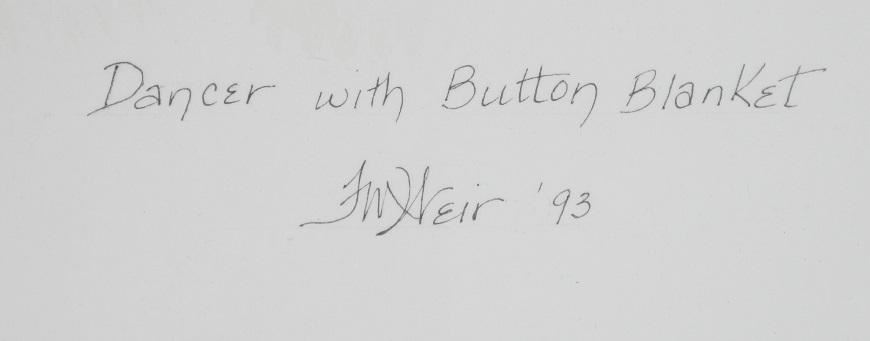 Dancer with Button Blanket
FMWeir '93